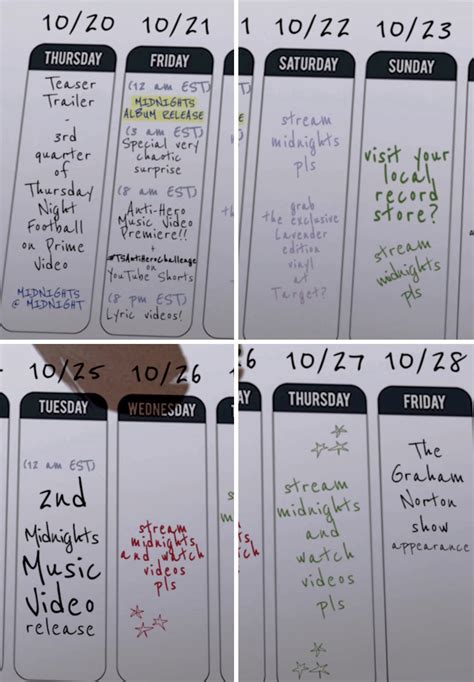 10/20
THURSDAY
Teaser
Trailer
-
3rd
quarter
of
Thursday
Night
Football
on Prime
Video
MIDNIGHTS
@ MIDNIGHT
10/21
FRIDAY
(12 am EST)
MIDNIGHTS
ALBUM RELEASE
(3 am EST)
Special very
chaotic
surprise
(8 am EST)
Anti-Hero
Music Video
Premiere!!
+
#TSAntiHeroChallenge
on
YouTube Shorts
(8 pm EST)
Lyric videos!
1
10/22
SATURDAY
stream
midnights
pls
grab
the exclusive
Lavender
edition
vinyl
at
Target?
10/23
SUNDAY
visit your
local
record
store?
stream
midnights
pls
10/25
TUESDAY
(12 am EST)
2nd
Midnights
Music
Video
release
10/26
WEDNESDAY
stream
midnights
and watch
videos
pls
6
10/27
THURSDAY
stream
midnights
and
watch
videos
pls
10/28
FRIDAY
The
Graham
Norton
show
appearance